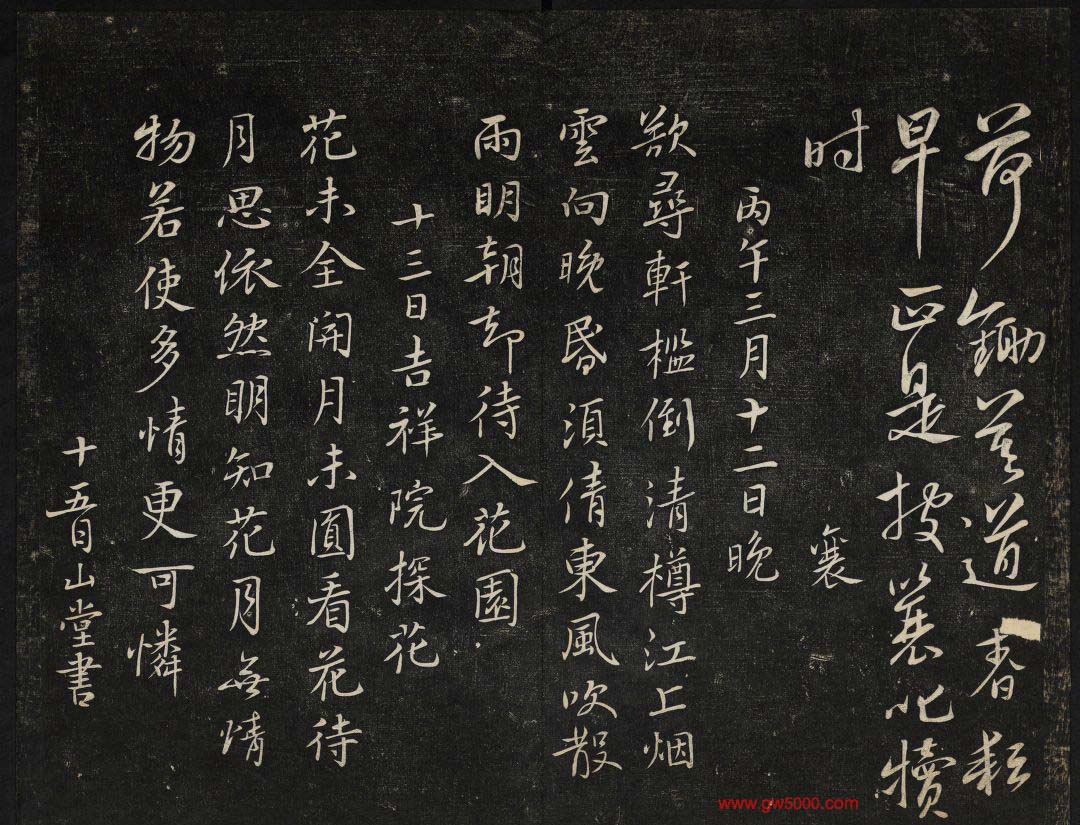 荷鋤莫道春耘
早正是披蓑叱犢
时
襄
丙午三月十二日晚
欲尋軒檻倒清樽江上烟
雲向晚昏須倩東風吹散
雨明朝却待入花園
十三日吉祥院探花
花未全開月未圓看花待
月思依然明知花月無情
物若使多情更可憐
十五日山堂書
www.gw5000.com